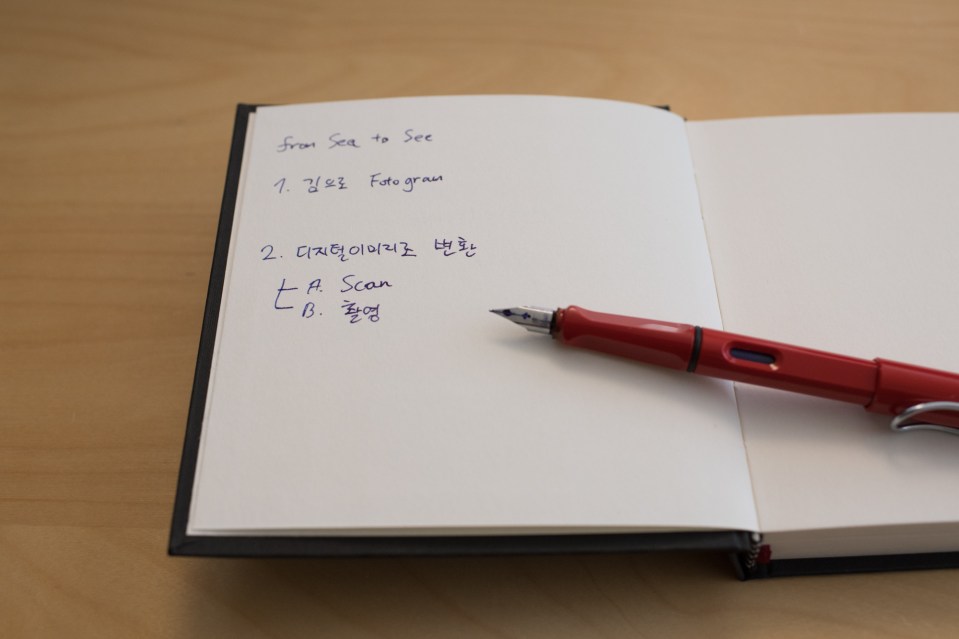 from Sea to See
1. 김으로 Fotogram
2. 디지털이미지로 변환
A. Scan
B. 촬영